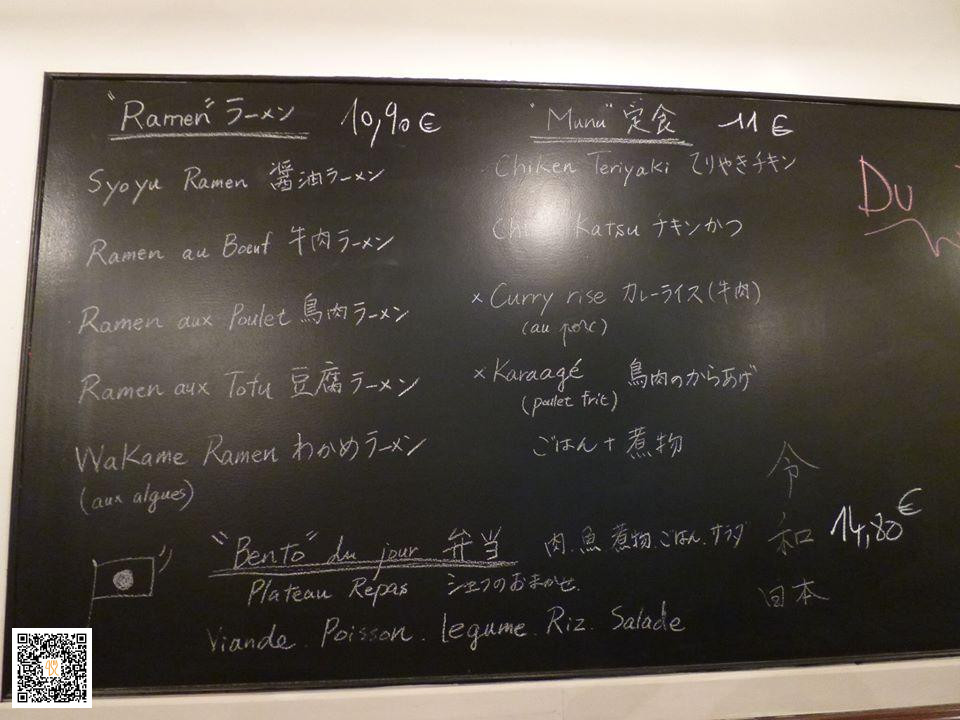 "Ramen" ラーメン 10,90 €
Syoyu Ramen 醤油ラーメン
Ramen au Boeuf 牛肉ラーメン
Ramen aux Poulet 鳥肉ラーメン
Ramen aux Tofu 豆腐ラーメン
Wakame Ramen わかめラーメン
(aux algues)
"Munu" 定食 11 €
Chiken Teriyaki てりやきチキン
Katsu チキンかつ
× Curry rise カレーライス(牛肉)
(au porc)
× Karaagé 鳥肉のからあげ
(poulet frit)
ごはん + 煮物
Du
"Bento" du jour 弁当 肉.魚.煮物.ごはん.サラダ
Plateau Repas シェフのおまかせ.
Viande. Poisson. legume. Riz. Salade
令和
日本
14,80 €